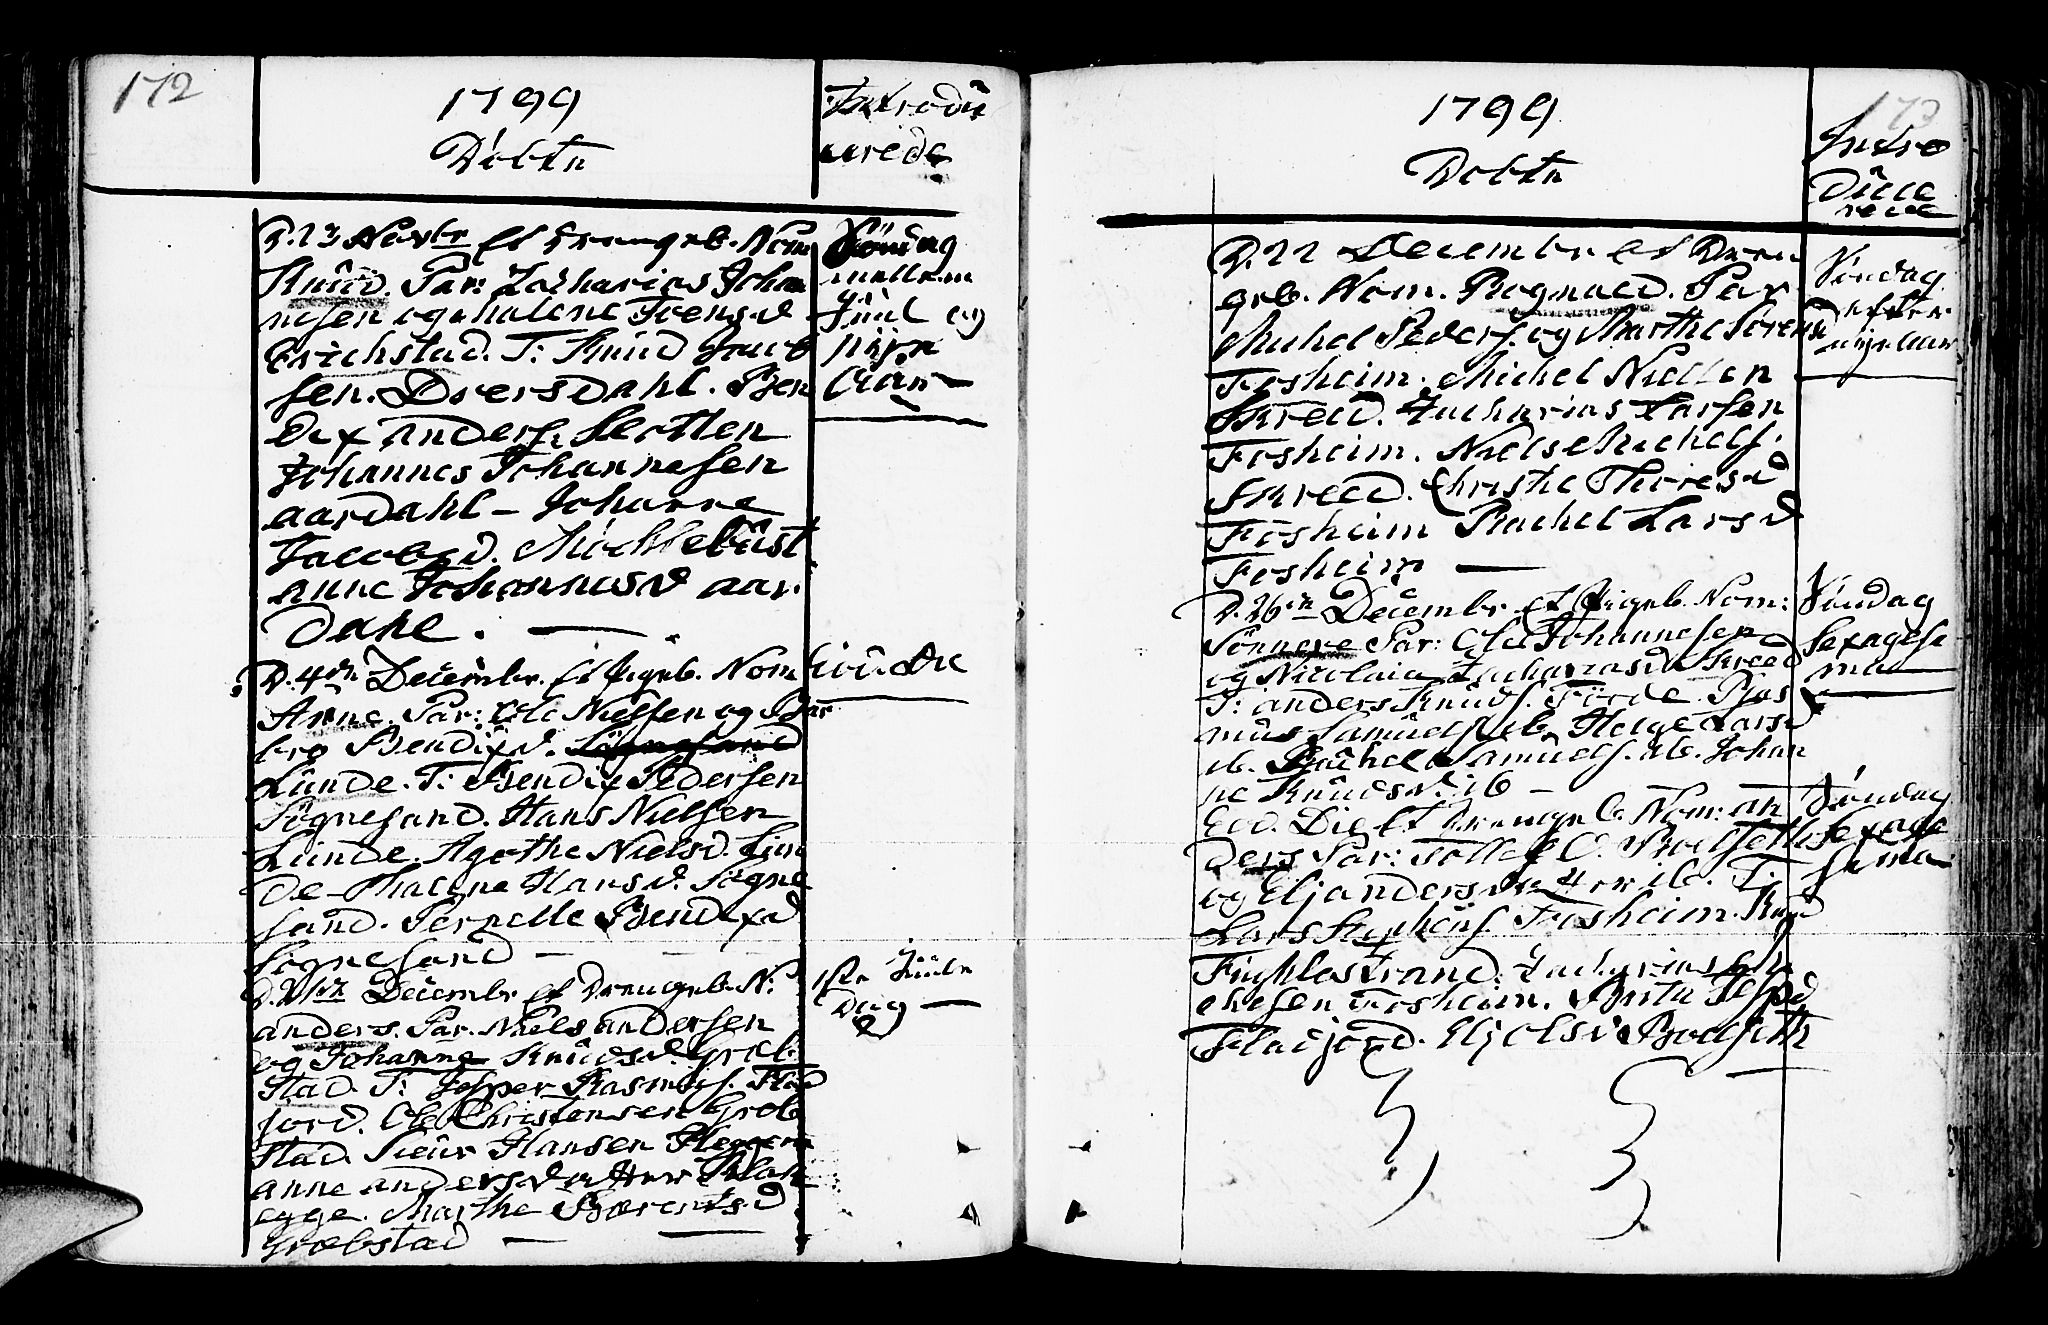 172
1799
Döbte
Introdu
cerede
D. 23 Novbr et Drengeb. Nom
Knûd. Par: Zacharias Johan
nesen og Malene Joensd
Erichstad. T: Knûd Jacob
sen. Dversdahl. Ben
dix Anders. Slotten
Johannes Johannesen
Aardahl - Johanne
Jacobsd. Möchlebûst
Anne Johannesd Aar
dahl.
Söndag
mellem
Jûûl og
nyt
Aar
D. 4de Decembr. et Pigeb. Nom
Anne. Par: Ole Nielsen og
Bendixd. Sögnesand
Lûnde. T: Bendix Pedersen
Sögnesand. Hans Nielsen
Lûnde. Agathe Nielsd. Lûn
de - Malene Hansd. Sögne
sand. Pernelle Bendixd
Sögnesand
D. 21de Decembr et Drengeb. N:
Anders. Par. Niels Andersen
og Johanne Knûdsd Græb
stad. T: Jesper Rasmûs. Flad
jord. Ole Christensen Græb
stad. Siûr Hansen
Anne Andersd
egge. Marthe Berentsd
Græbstad
1ste Jûûle
Dag
173
1799
Döbte
Intro
dûce
rede
D. 22 Decembr et Dren
geb. Nom. Rognald. Par
Michel Peders. og Marthe Sörensd
Fosheim. Michel Nielsen
Skreed. Zacharias Larsen
Fosheim. Niels Michels.
Skreed. Christie Thoresd
Fosheim Rachel Larsd
Fosheim
Söndag
efter
nytaar
D. 26de Decembr et Pigeb. Nom:
Sönneve Par: Ole Johannesen
og Nicolaia Zachariasd Skreed
T: Anders Knûds. Förde. Ras
mus Samûels. ib. Helge Larsd
ib. Rachel Samûels. ib. Johan
ne Knûdsd. ib
Söndag
Sexagesi
ma
Eod. Die et Drengeb. Nom: An
ders Par: Tollef O. Roeseth
og Eli Andersd ib. T:
Lars Stephens. Fosheim. Knûd
Zacharias
Fosheim. Brita
Fladjord. Eli Olsd Roeseth
Söndag
Sexage
sima